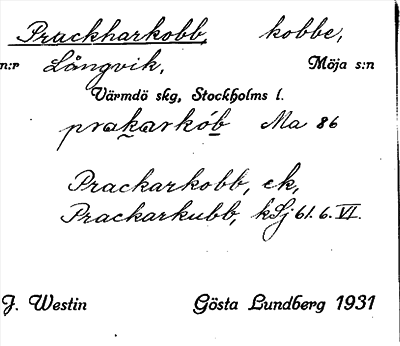 Prackharkobb, kobbe,
n:r Långvik, Möja s:n
Värmdö skg, Stockholms l.
prakarkób Ma 86
Prackarkobb, ek,
Prackarkubb, kSj 61.6.VI.
J. Westin Gösta Lundberg 1931